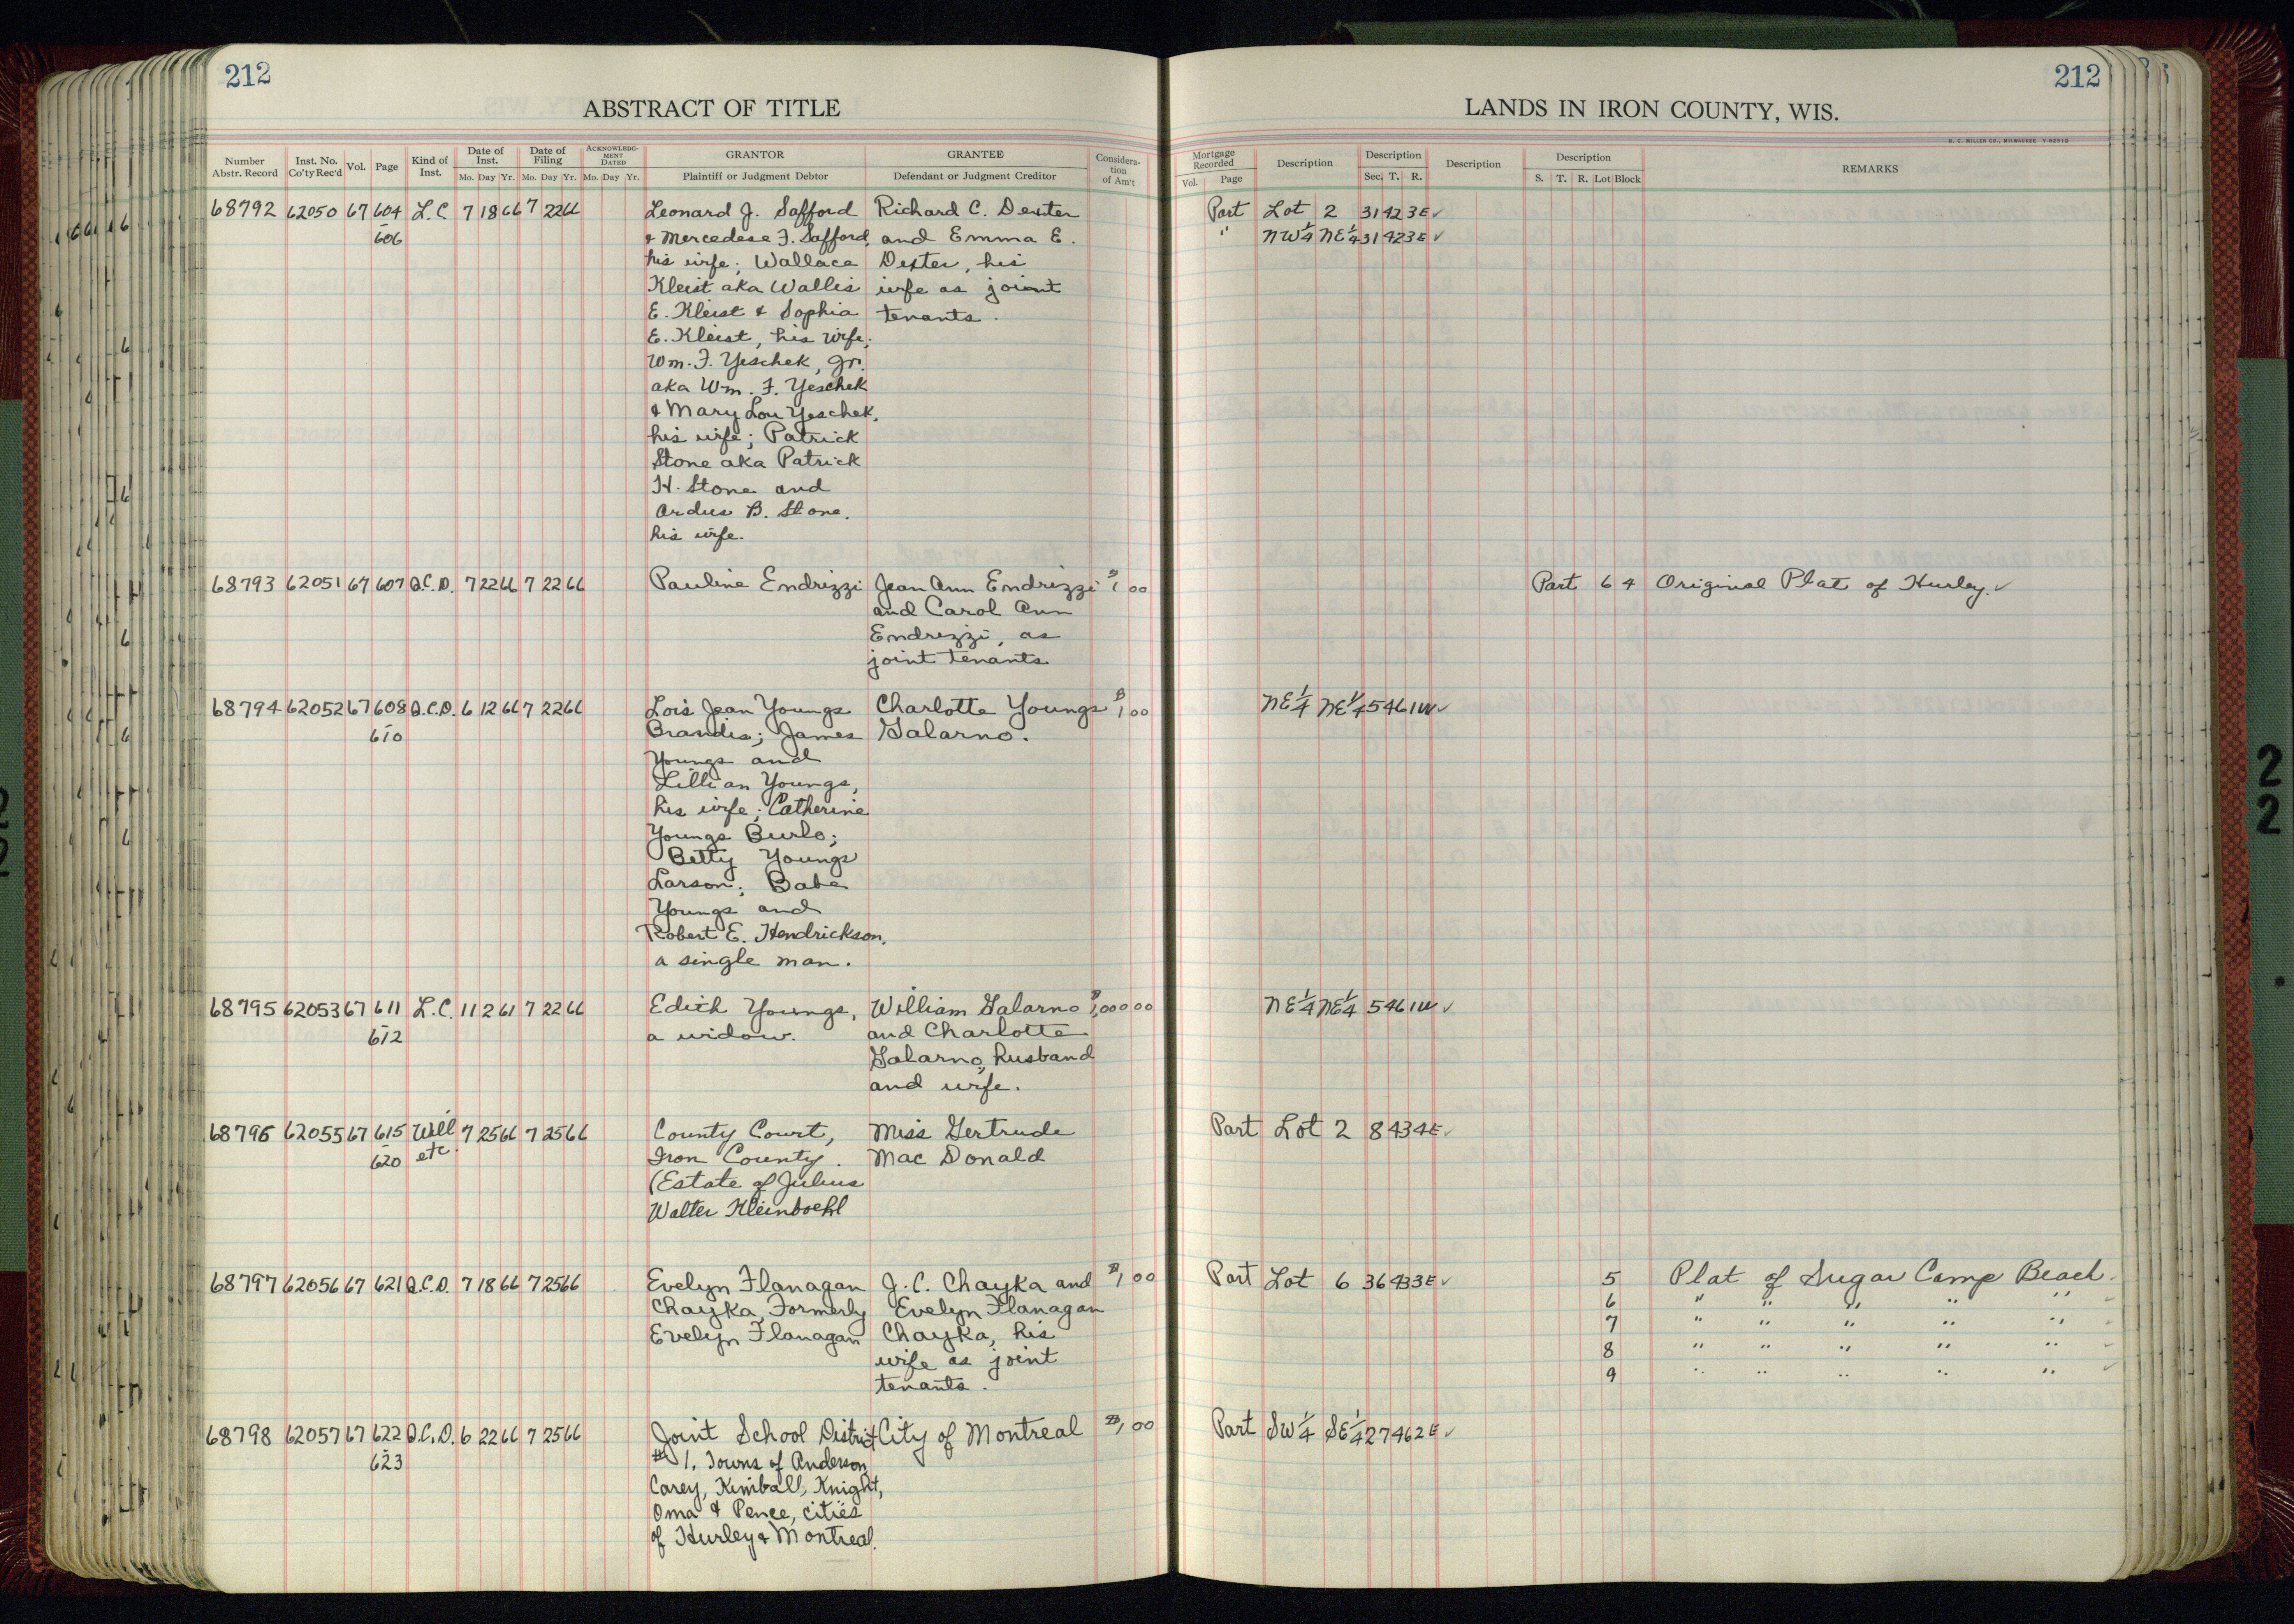 212
ABSTRACT OF TITLE
Number Abstr. Record
Inst. No. Co'ty Rec'd
Vol.
Page
Kind of Inst.
Date of Inst.
Mo. Day Yr.
Date of Filing
Mo. Day Yr.
ACKNOWLEDGMENT DATED
Mo. Day Yr.
GRANTOR
Plaintiff or Judgment Debtor
GRANTEE
Defendant or Judgment Creditor
Consideration of Am't
68792 62050 67 604 L.C. 7 18 66 7 22 66 Leonard J. Safford Richard C. Dexter
606 & Mercedese F. Safford, and Emma E.
his wife; Wallace Dexter, his
Kleist aka Wallis wife as joint
E. Kleist & Sophia tenants.
E. Kleist, his wife;
Wm. F. Yeschek, Jr.
aka Wm. F. Yeschek
& Mary Lou Yeschek,
his wife; Patrick
Stone aka Patrick
H. Stone and
Ardus B. Stone,
his wife.
68793 62051 67 607 Q.C.D. 7 22 66 7 22 66 Pauline Endrizzi Jean Ann Endrizzi $1 00
and Carol Ann
Endrizzi, as
joint tenants
68794 62052 67 608 Q.C.D. 6 12 66 7 22 66 Lois Jean Youngs Charlotte Youngs $1 00
610 Brandis; James Galarno.
Youngs and
Lillian Youngs,
his wife; Catherine
Youngs Burlo;
Betty Youngs
Larson; Babe
Youngs and
Robert E. Hendrickson,
a single man.
68795 62053 67 611 L.C. 11 2 61 7 22 66 Edith Youngs, William Galarno $1,000 00
612 a widow. and Charlotte
Galarno, husband
and wife.
68796 62055 67 615 Will 7 25 66 7 25 66 County Court, Miss Gertrude
620 etc. Iron County. Mac Donald
(Estate of Julius
Walter Kleinboehl
68797 62056 67 621 Q.C.D. 7 18 66 7 25 66 Evelyn Flanagan J.C. Chayka and $1 00
Chayka, Formerly Evelyn Flanagan
Evelyn Flanagan Chayka, his
wife as joint
tenants.
68798 62057 67 622 Q.C.D. 6 22 66 7 25 66 Joint School District City of Montreal $1 00
623 #1, Towns of Anderson,
Carey, Kimball, Knight,
Oma & Pence, cities
of Hurley & Montreal.
212
LANDS IN IRON COUNTY, WIS.
H. C. MILLER CO., MILWAUKEE
Mortgage Recorded
Vol. Page
Description
Description
Sec. T. R.
Description
Description
S. T. R. Lot Block
REMARKS
Part Lot 2 31 42 3E ✓
" NW¼ NE¼ 31 42 3E ✓
Part 6 4 Original Plat of Hurley. ✓
NE¼ NE¼ 5 46 1W ✓
NE¼ NE¼ 5 46 1W ✓
Part Lot 2 8 43 4E ✓
Part Lot 6 36 43 3E ✓ 5 Plat of Sugar Camp Beach.
6 " " " " " ✓
7 " " " " " ✓
8 " " " " " ✓
9 " " " " " ✓
Part SW¼ SE¼ 27 46 2E ✓
2
2